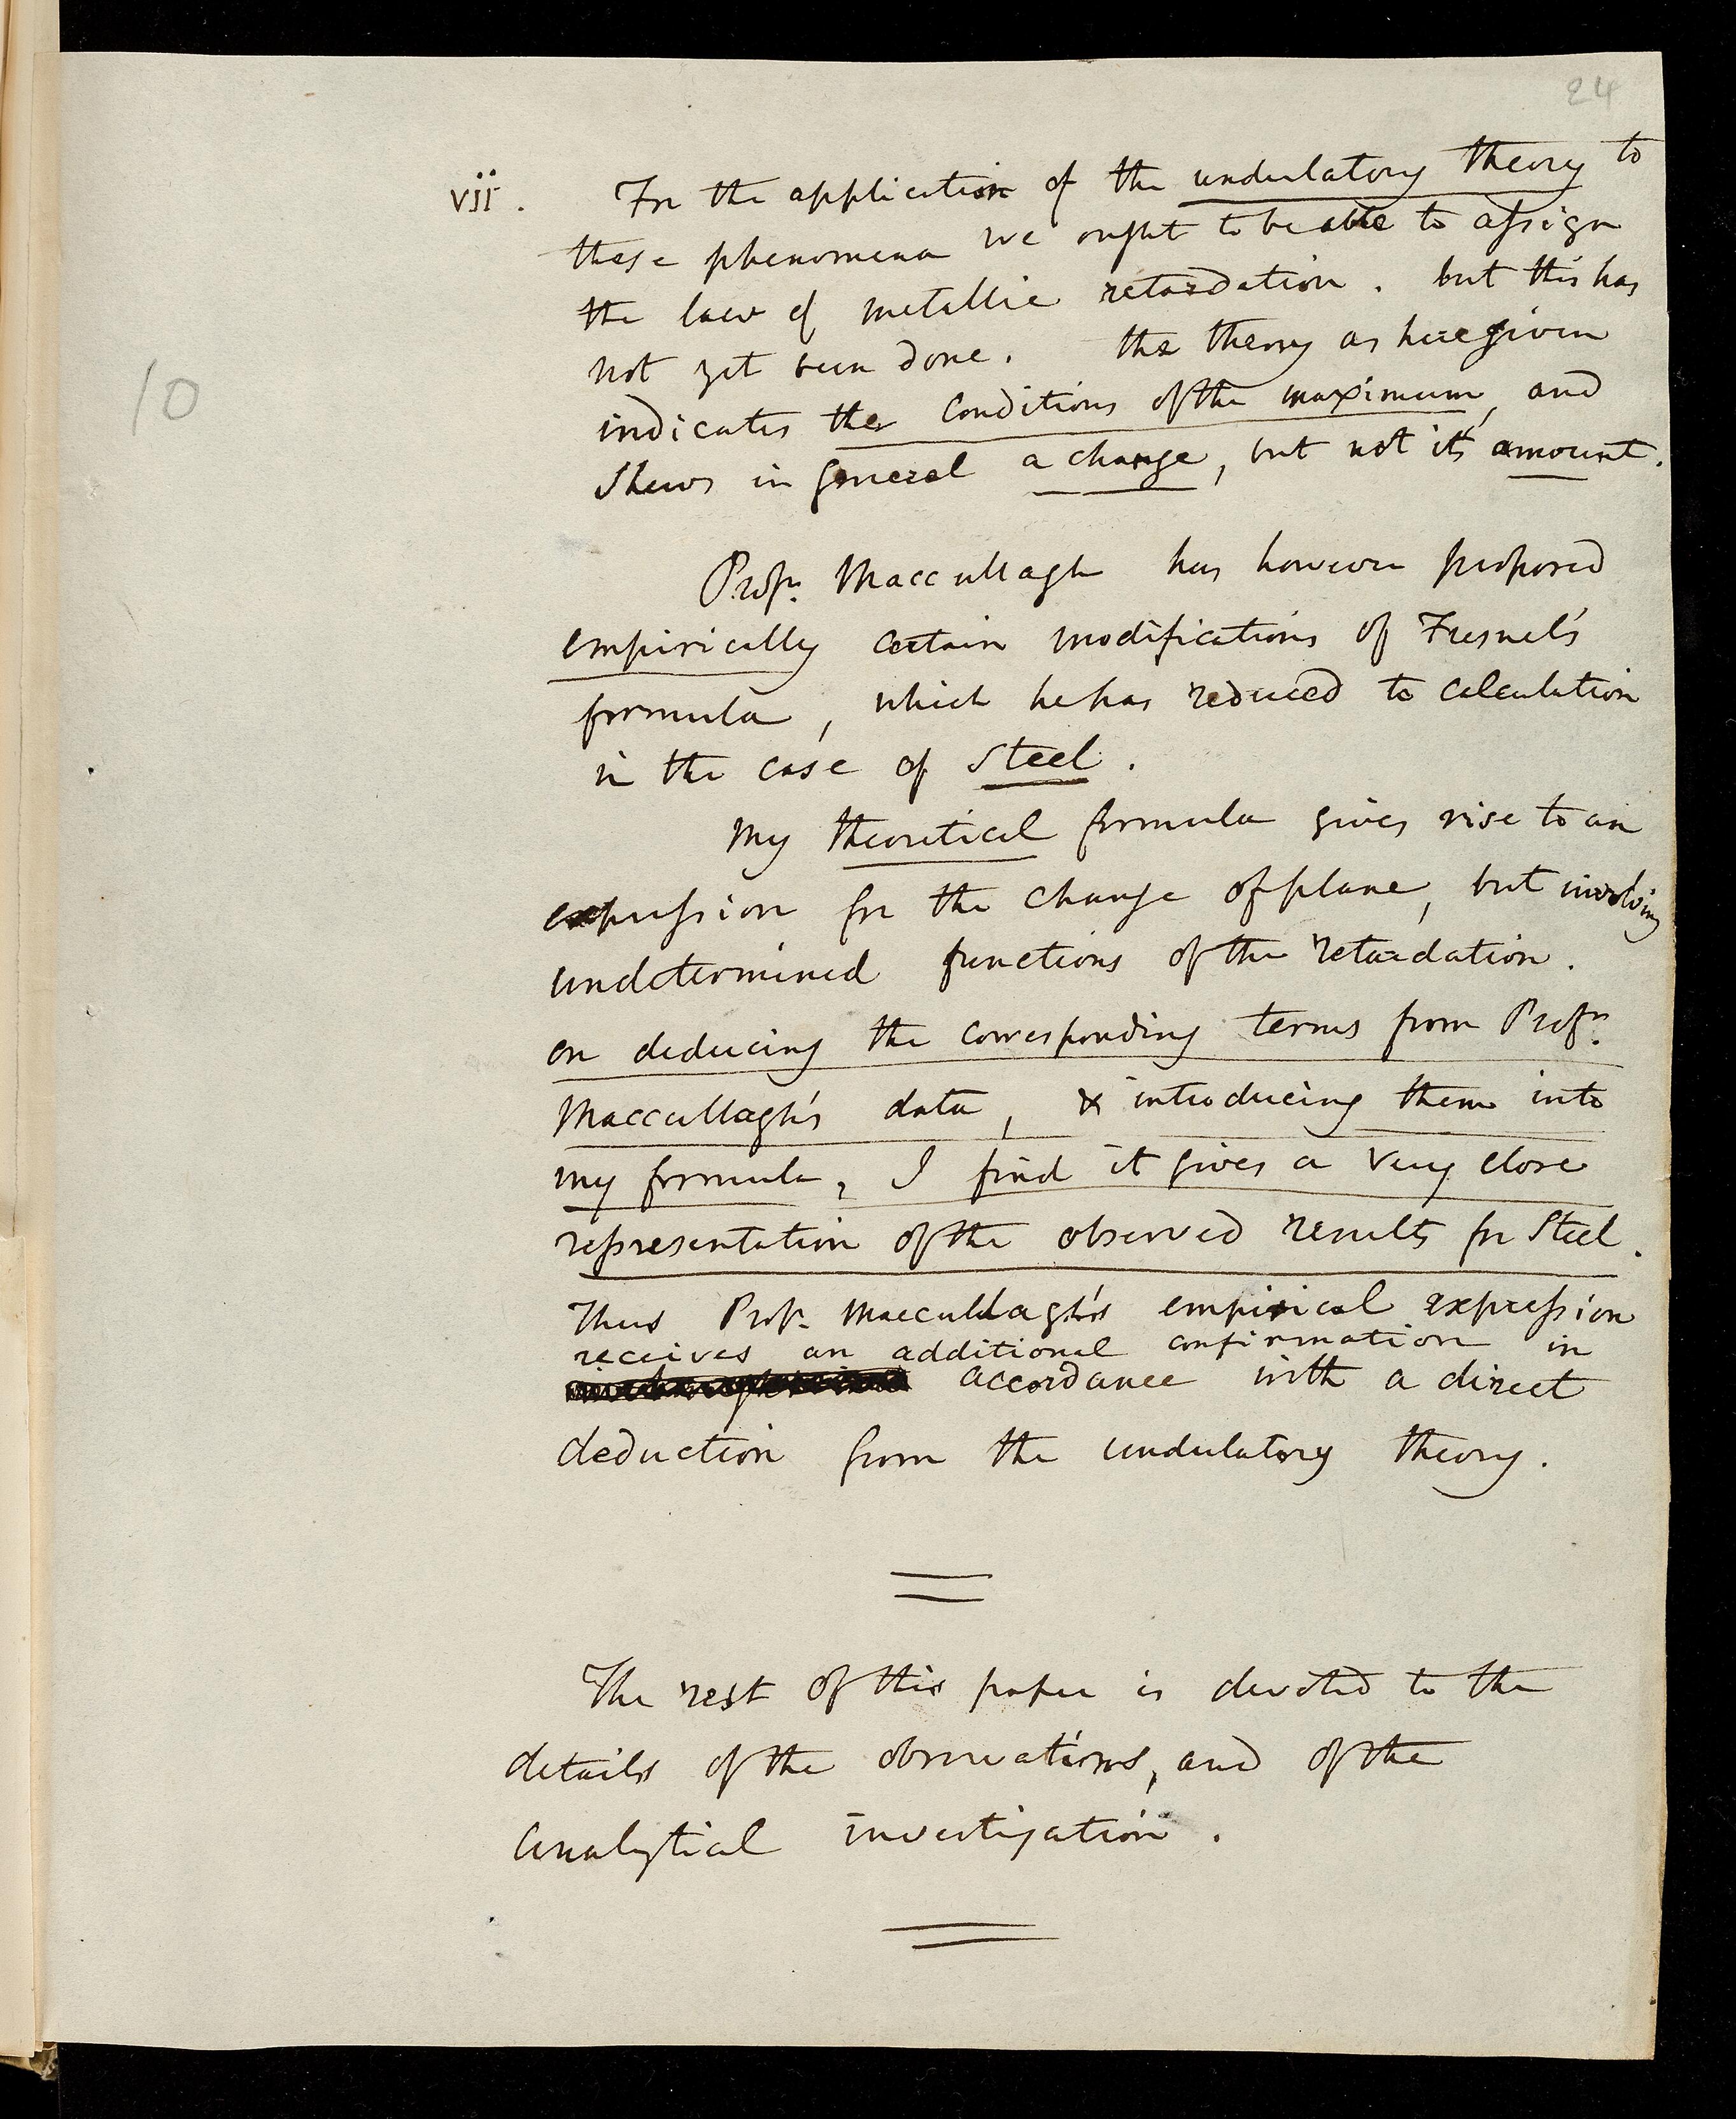 24
vii. For the application of the undulatory theory to
these phenomena we ought to be able to assign
the law of metallic retardation. but this has
not yet been done. the theory as here given
indicates the conditions of the maximum, and
shews in general a change, but not its amount.
10
Profr. Maccullagh has however proposed
empirically certain modifications of Fresnel's
formula, which he has reduced to calculation
in the case of Steel.
My theoretical formula gives rise to an
expression for the change of plane, but involving
undetermined functions of the retardation.
on deducing the corresponding terms from Profr.
Maccullagh's data, & introducing them into
my formula, I find it gives a very close
representation of the observed results for Steel.
Thus Prof. Maccullagh's empirical expression
receives an additional confirmation in
accordance with a direct
deduction from the undulatory theory.
The rest of this paper is devoted to the
details of the observations, and of the
analytical investigation.